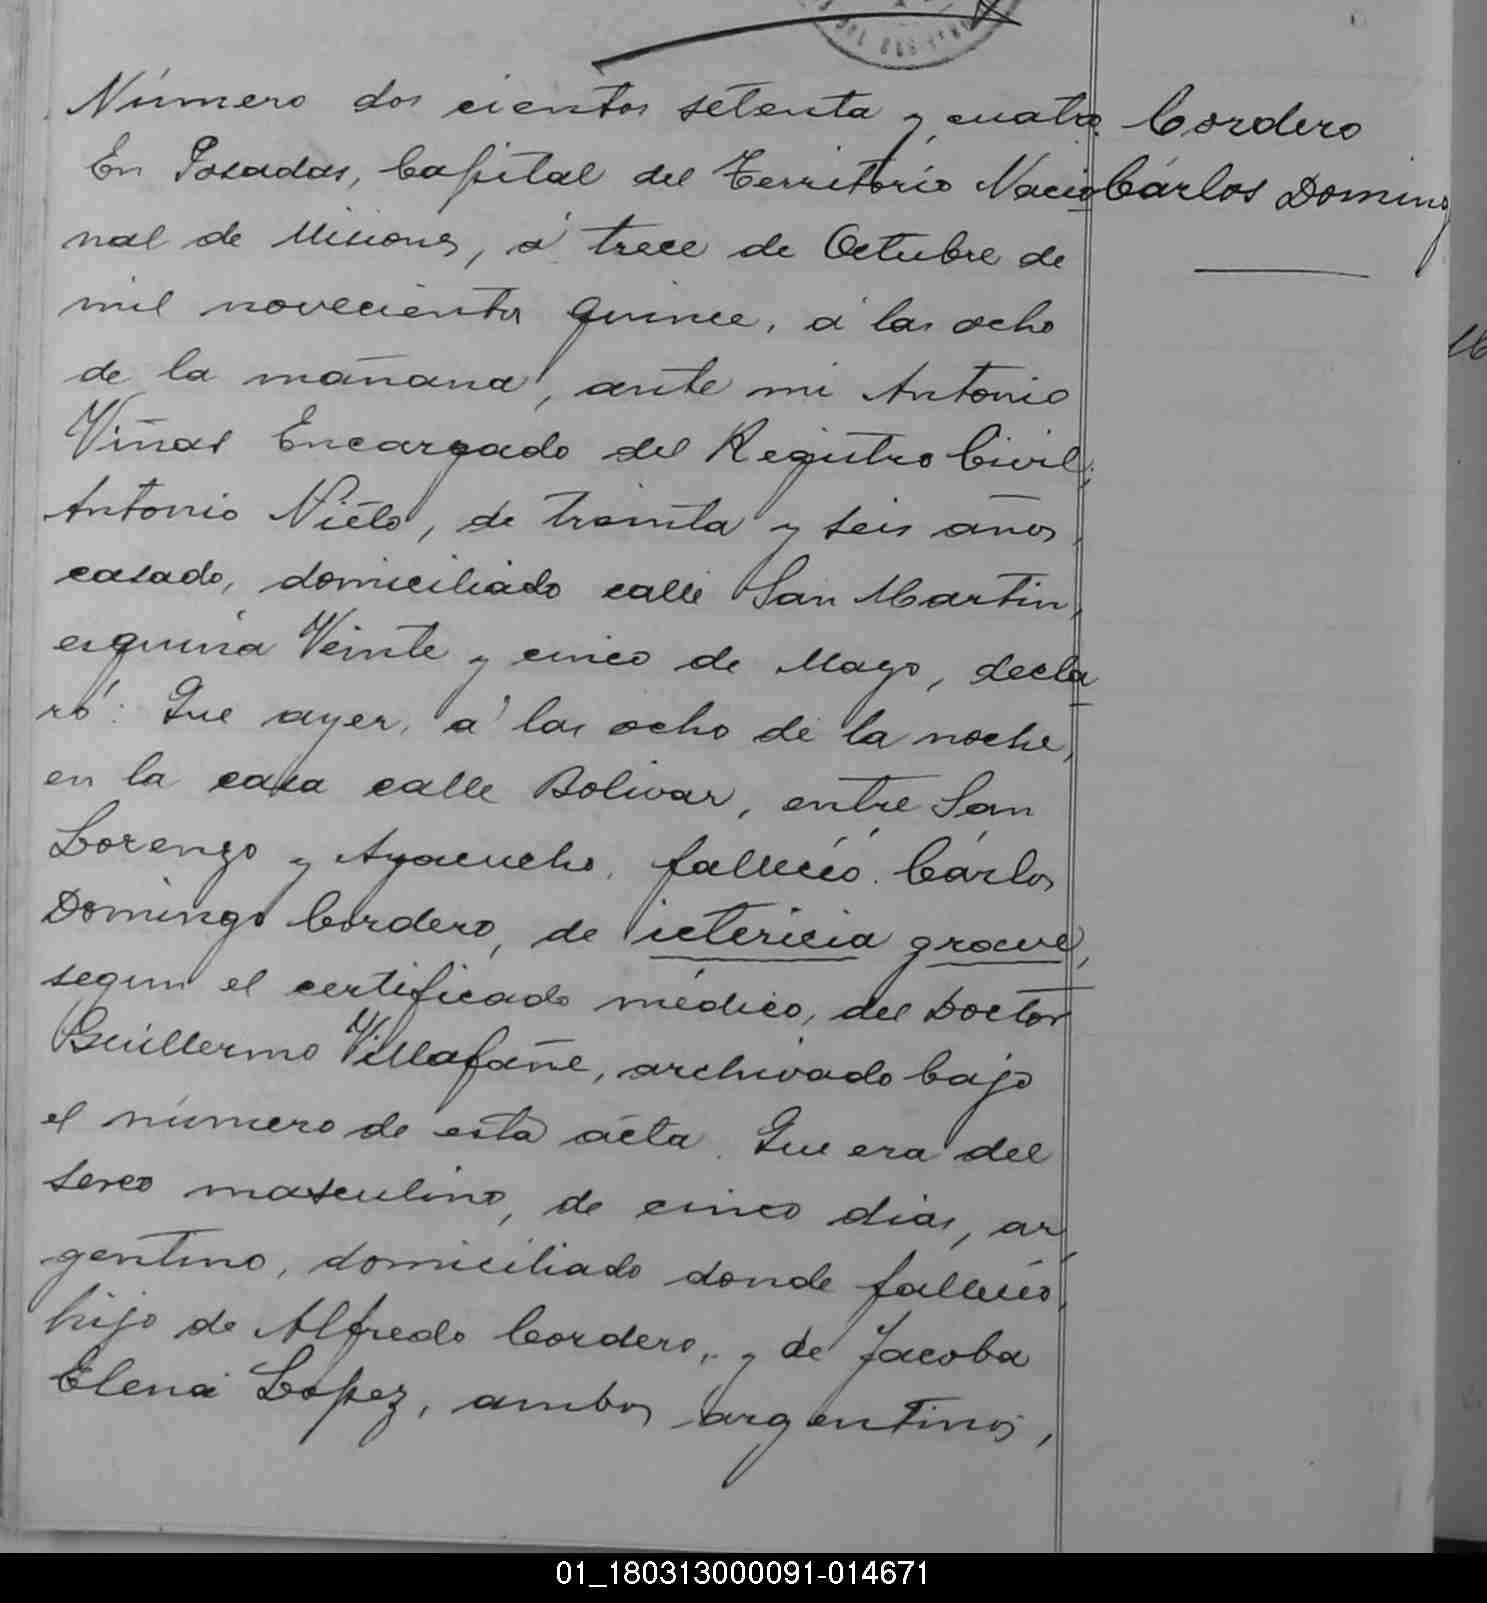 Número dos cientos setenta y cuatro.
Cordero
En Posadas, Capital del Territorio Nacio
Cárlos Domingo
nal de Misiones, á trece de Octubre de
mil novecientos quince, á las ocho
de la mañana, ante mi Antonio
Viñas Encargado del Registro Civil;
Antonio Nieto, de treinta y seis años,
casado, domiciliado calle San Martin,
esquina Veinte y cinco de Mayo, decla
ró: Que ayer, á las ocho de la noche,
en la casa calle Bolivar, entre San
Lorenzo y Ayacucho, falleció Cárlos
Domingo Cordero, de ictericia grave,
segun el certificado médico, del Doctor
Guillermo Villafañe, archivado bajo
el número de esta acta. Que era del
sexo masculino, de cinco dias, ar
gentino, domiciliado donde falleció,
hijo de Alfredo Cordero, y de Jacoba
Elena Lopez, ambos argentinos,
01_180313000091-014671